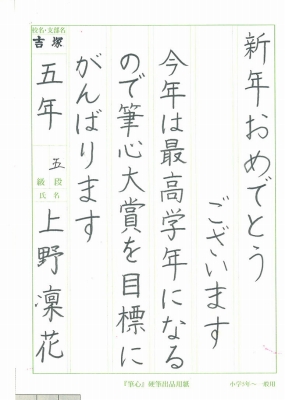 新年おめでとう
ございます
今年は最高学年になる
ので筆心大賞を目標に
がんばります
校名・支部名
吉塚
五年
五
級 段
氏名
上野凜花
『筆心』硬筆出品用紙
小学5年～一般用